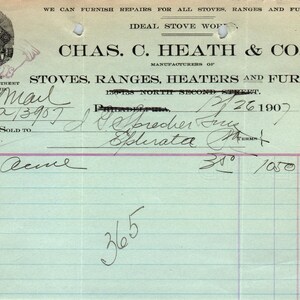 WE CAN FURNISH REPAIRS FOR ALL STOVES, RANGES AND FU
IDEAL STOVE WOR
CHAS. C. HEATH & CO
MANUFACTURERS OF
STOVES, RANGES, HEATERS AND FUR
Mail
NORTH SECOND STREET.
PHILADELPHIA, 12/26 1907
SOLD TO
Ephrata Pa TERMS
350 1050
365